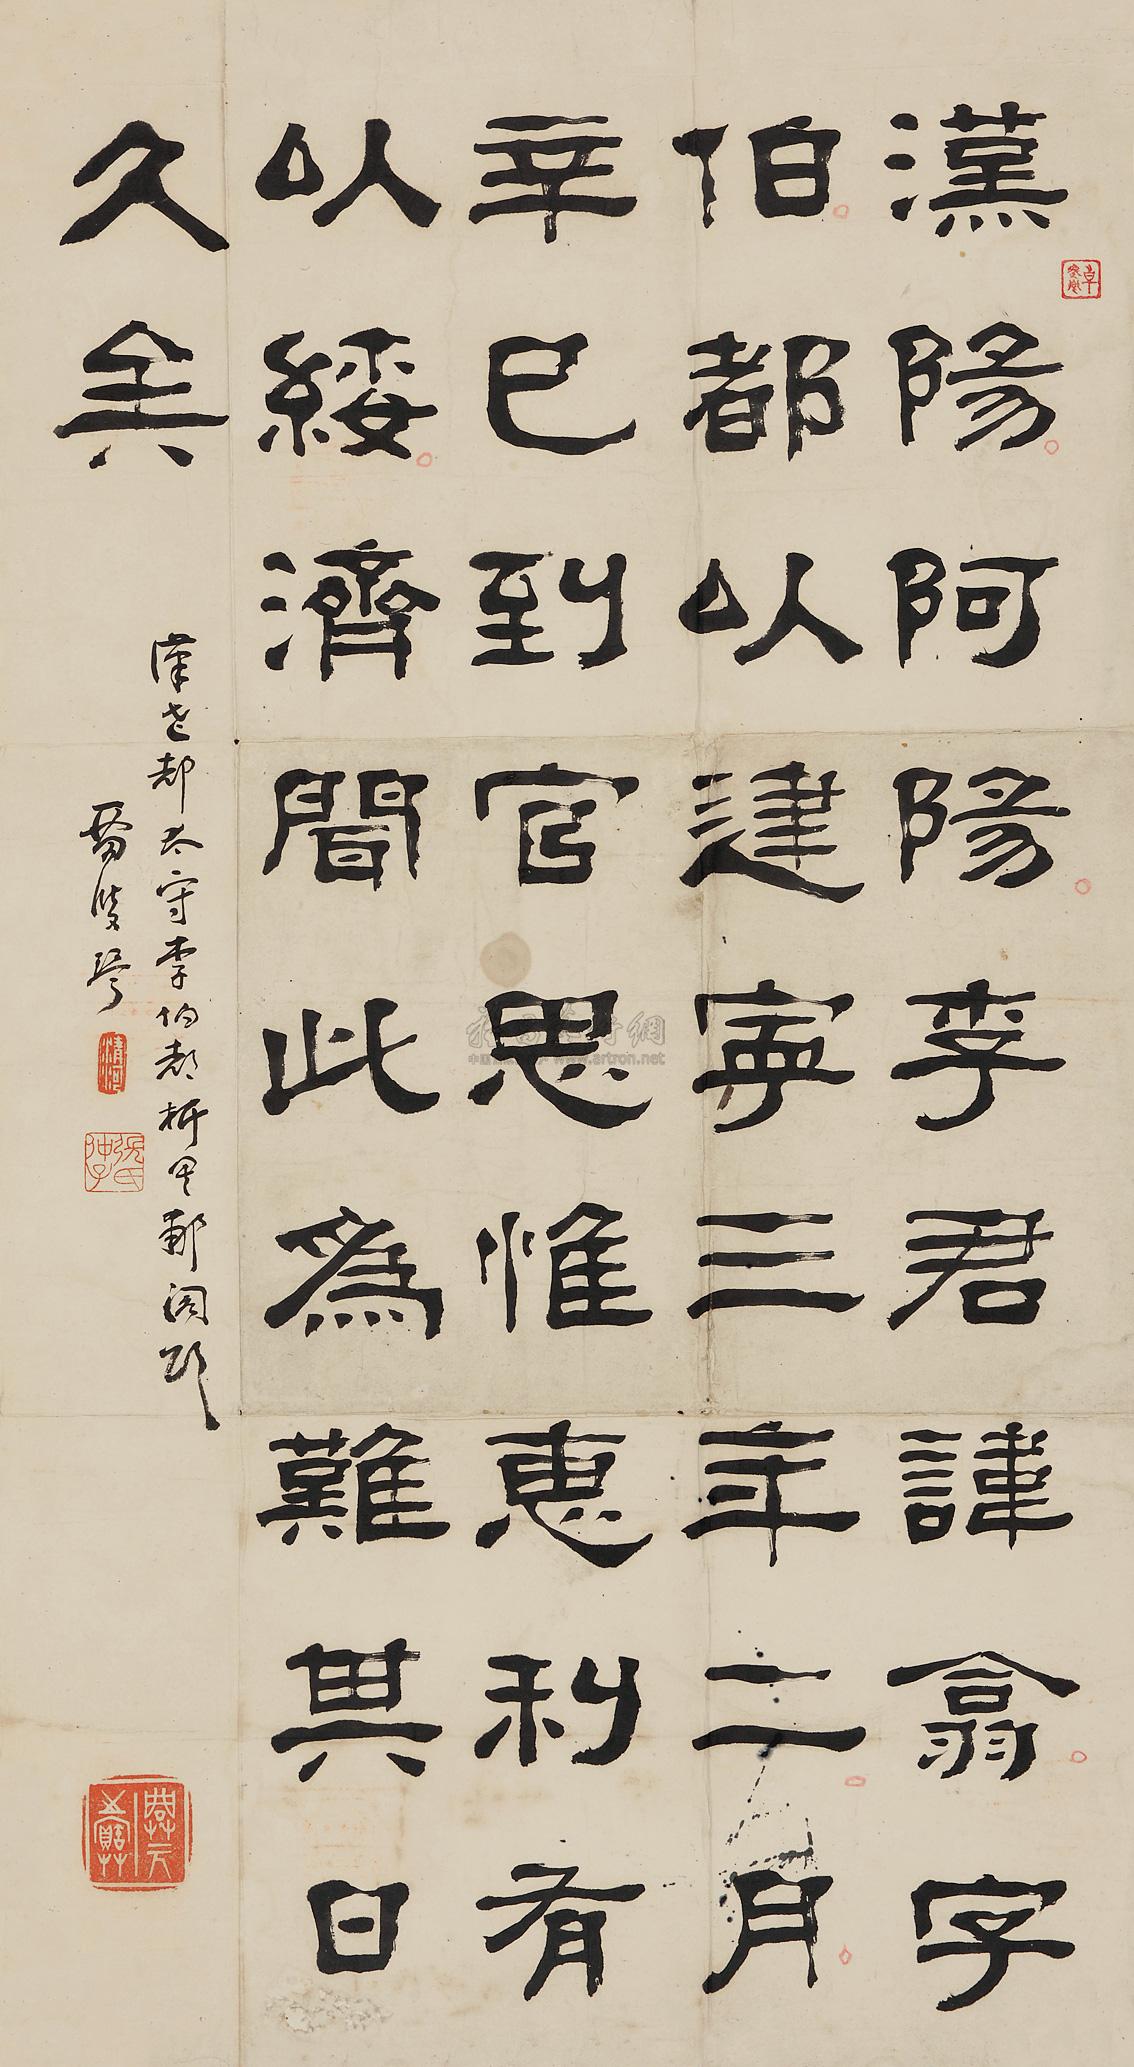 漢陽阿陽李君諱翕字
伯都以建寧三年二月
辛巳到官思惟惠利有
以綏濟間此為難其日
久矣
漢武都太守李伯都析里郙閣頌
清河
www.artron.net